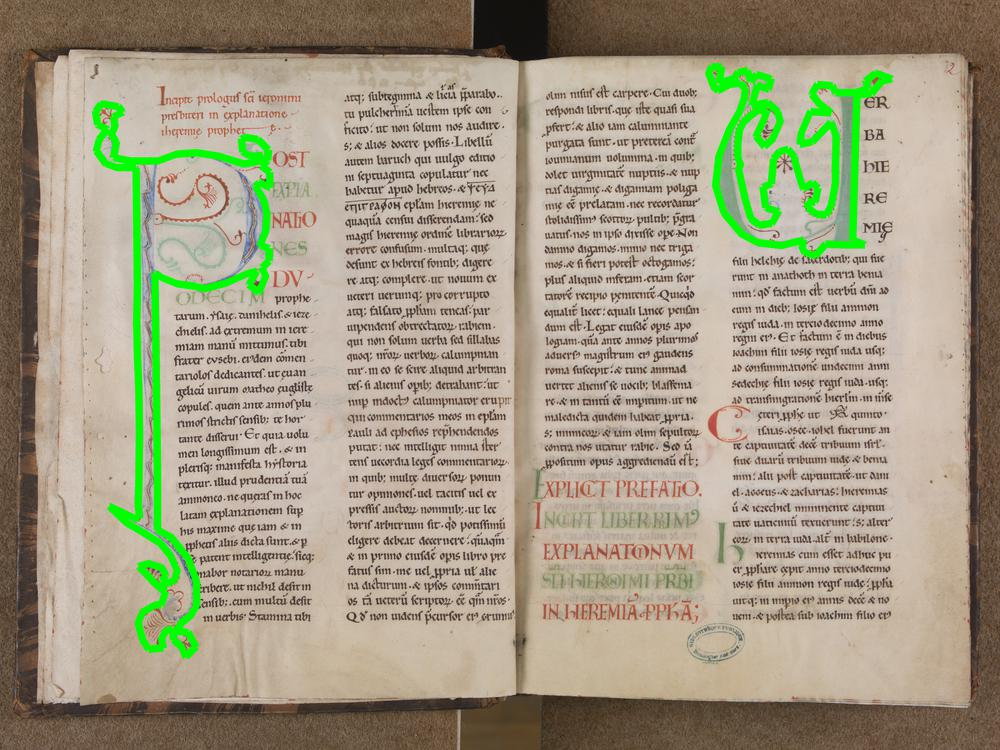 Incipit prologus sci ieronimi
presbiteri in explanatione
iheremie prophet e.
P OST
EXPLA
NATIO
NES
DV
ODECIM prophe
tarum. ysaie. danihelis. & ieze
chielis. ad extremum in iere
miam manū mittimus. tibi
frater eusebi. eundem cōmen
tariolos dedicantes. ut euan
gelicū uirum matheo euglistę
copules. quem ante annos plu
rimos strictis sensib; te hor
tante disserui. Et quia uolu
men longissimum est. & in
plerisq; manifesta hystoria
texitur. illud prudentiā tuā
ammoneo. ne queras in hoc
latam explanationem sup
his maxime que iam & in
pphetis aliis dicta sunt. & p
patent intelligentię. sicq;
notarior manu
ut nichil desit in
sensib; cum multū desit
in uerbis. Stamina tibi
atq; subtegmina & licia ppara
tu pulcherrimā uestem ipse con
ficito. ut non solum nos audire.
s; & alios docere possis. Libellū
autem baruch qui uulgo editio
ni septuaginta copulatur nec
habetur apud hebreos. &
hieremie ne
quaquā censui disserendam. sed
magis hieremie ordinē librarior
errore confusum. multaq; que
desunt ex hebreis fontib; digere
re. atq; complere. ut nouum ex
ueteri uerumq; pro corrupto
atq; falsato pphetam teneas. par
uipendens obtrectator rabiem.
qui non solum uerba sed sillabas
quoq; nror uerbor. calumpnian
tur. in eo se scire aliquid arbitran
tes. si alienis opib; detrahant. ut
nup indoct calumpniator erupit
qui commentarios meos in eplam
pauli ad ephesios rephendendos
putat. nec intelligit nimia ster
tens uecordia leges commentarior.
in quib; multe diuersor. ponun
tur opiniones. uel tacitis uel ex
pressis auctor nominib; ut lec
toris arbitrium sit. qd potissimū
eligere debeat decernere. quāqm
& in primo eiusdē opis libro pre
fatus sim. me uel ppria ul alie
na dicturum. & ipsos cōmentari
os tā ueterū scriptor. eē qm nros.
Qd non uidens pcursor ei grunniī
olim nisus est carpere. Cui duob;
respondi libris. que iste quasi sua
pfert. & alio iam calumniante
purgata sunt. ut preteream con
iouinianum uolumina. in quib;
dolet uirginitatē nuptiis. & nup
tias digamie. & digamiam poliga
mię eē prelatam. nec recordatur
stolidissimus & scottor. pultib; pgra
uatus. nos in ipso dixisse ope. Non
damno digamos. immo nec triga
mos. & si fieri potest octogamos.
plus aliquid inferam. etiam scor
tatorē recipio penitentē. Quicqd
equaliter licet. equali lance pensan
dum est. Legat eiusdē opis apo
logiam. quā ante annos plurimos
aduers magistrum ei gaudens
roma suscepit. & tunc animad
uertet alienis se uocib; blasfema
re. & in tantū eē impitum. ut ne
maledicta quidem habeat ppria.
s; inimicor. & iam olim sepultor
contra nos utatur rabie. Sed ū
ppositum opus aggrediendū est;
EXPLICIT PREFATIO.
INCIPIT LIBER PRIMVS
EXPLANATIONVM
STI HIERONIMI PRBI
IN HEREMIĀ PPHĀ;
V ER
BA
HIE
RE
MIE
filii helchie de sacerdotib; qui fue
runt in anathoth in terra benia
min. qd factum est uerbū dnī ad
eum in dieb; iosie filii ammon
regis iuda. in terciodecimo anno
regni ei. Et factum ē in diebus
ioachim filii iosie regis iuda usq;
ad consummationē undecimi anni
sedechie filii iosie regis iuda. usq;
ad transmigrationē hierlm in mse
C eteri pphe ut quinto.
isaias. osee. iohel fuerunt an
te captiuitatē decē tribuum isrl.
siue duarū tribuum iude & benia
min. alii post captiuitatē. ut dani
el. aggeus. & zacharias. hieremias
ū & iezechiel imminente captiui
tate uaticiniū texuerunt. s; alter
eor. in terra iuda. alt in babilone.
h ieremias cum esset adhuc pu
er pphare cepit anno terciodecimo
iosie filii ammon regis iude. pphau
itq; in imperio ei annis decē & no
uem. & postea sub ioachim filio ei